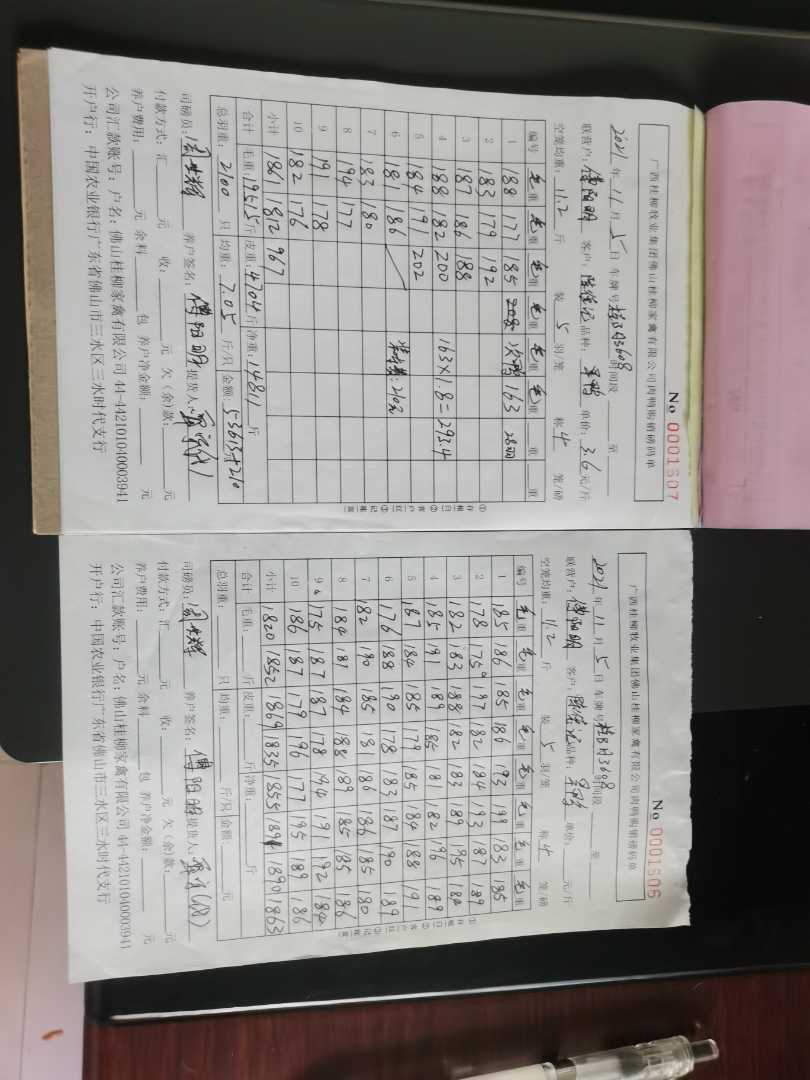 广西桂柳牧业集团佛山桂柳家禽有限公司肉鸭购销磅码单
No 0001607
2021年 11月 5日 车牌号 时间段 至
联营户: 傅阳明 客户: 品种: 单价: 3.6元/斤
空笼均重: 11.2 斤 装 5 羽/笼 称 4 笼/磅
编号 毛重 毛重 毛重 毛重 毛重 毛重 重 重
1 188 177 185 208 次鸭 163
2 183 179 192
3 187 186 188
4 188 182 200 163×1.8=293.4
5 184 191 202
6 181 186
7 183 180
8 194 177
9 191 178
10 182 176
小计 1861 1812 967
合计 毛重: 19515斤 皮重: 4704斤 净重: 14811斤
总羽重: 2100 只 均重: 7.05 斤/只 金额: 53613元
司磅员: 养户签名: 傅阳明 提货人:
付款方式: 汇 元 收: 元 欠(余)款: 元
养户费用: 元 余料 包 养户净金额: 元
公司汇款账号: 户名: 佛山桂柳家禽有限公司 44-442101040003941
开户行: 中国农业银行广东省佛山市三水区三水时代支行
①存根白 ②客户红 ③记账黄
广西桂柳牧业集团佛山桂柳家禽有限公司肉鸭购销磅码单
No 0001606
2021年 11月 5日 车牌号 时间段 至
联营户: 傅阳明 客户: 品种: 单价: 元/斤
空笼均重: 11.2 斤 装 5 羽/笼 称 4 笼/磅
编号 毛重 毛重 毛重 毛重 毛重 毛重 毛重 毛重
1 185 186 185 186 193 199 183 185
2 178 175 197 182 184 193 187 189
3 182 183 188 182 183 189 195 184
4 185 191 189 185 181 182 196 189
5 187 184 185 179 185 184 188 191
6 176 188 190 178 183 187 190 189
7 182 190 185 181 186 186 185 180
8 184 181 184 188 189 185 185 186
9 175 187 187 178 194 191 192 184
10 186 187 179 196 177 195 189 186
小计 1820 1852 1869 1835 1855 1891 1890 1863
合计 毛重: 斤 皮重: 斤 净重: 斤
总羽重: 只 均重: 斤/只 金额: 元
司磅员: 养户签名: 傅阳明 提货人:
付款方式: 汇 元 收: 元 欠(余)款: 元
养户费用: 元 余料 包 养户净金额: 元
公司汇款账号: 户名: 佛山桂柳家禽有限公司 44-442101040003941
开户行: 中国农业银行广东省佛山市三水区三水时代支行
①存根白 ②客户红 ③记账黄